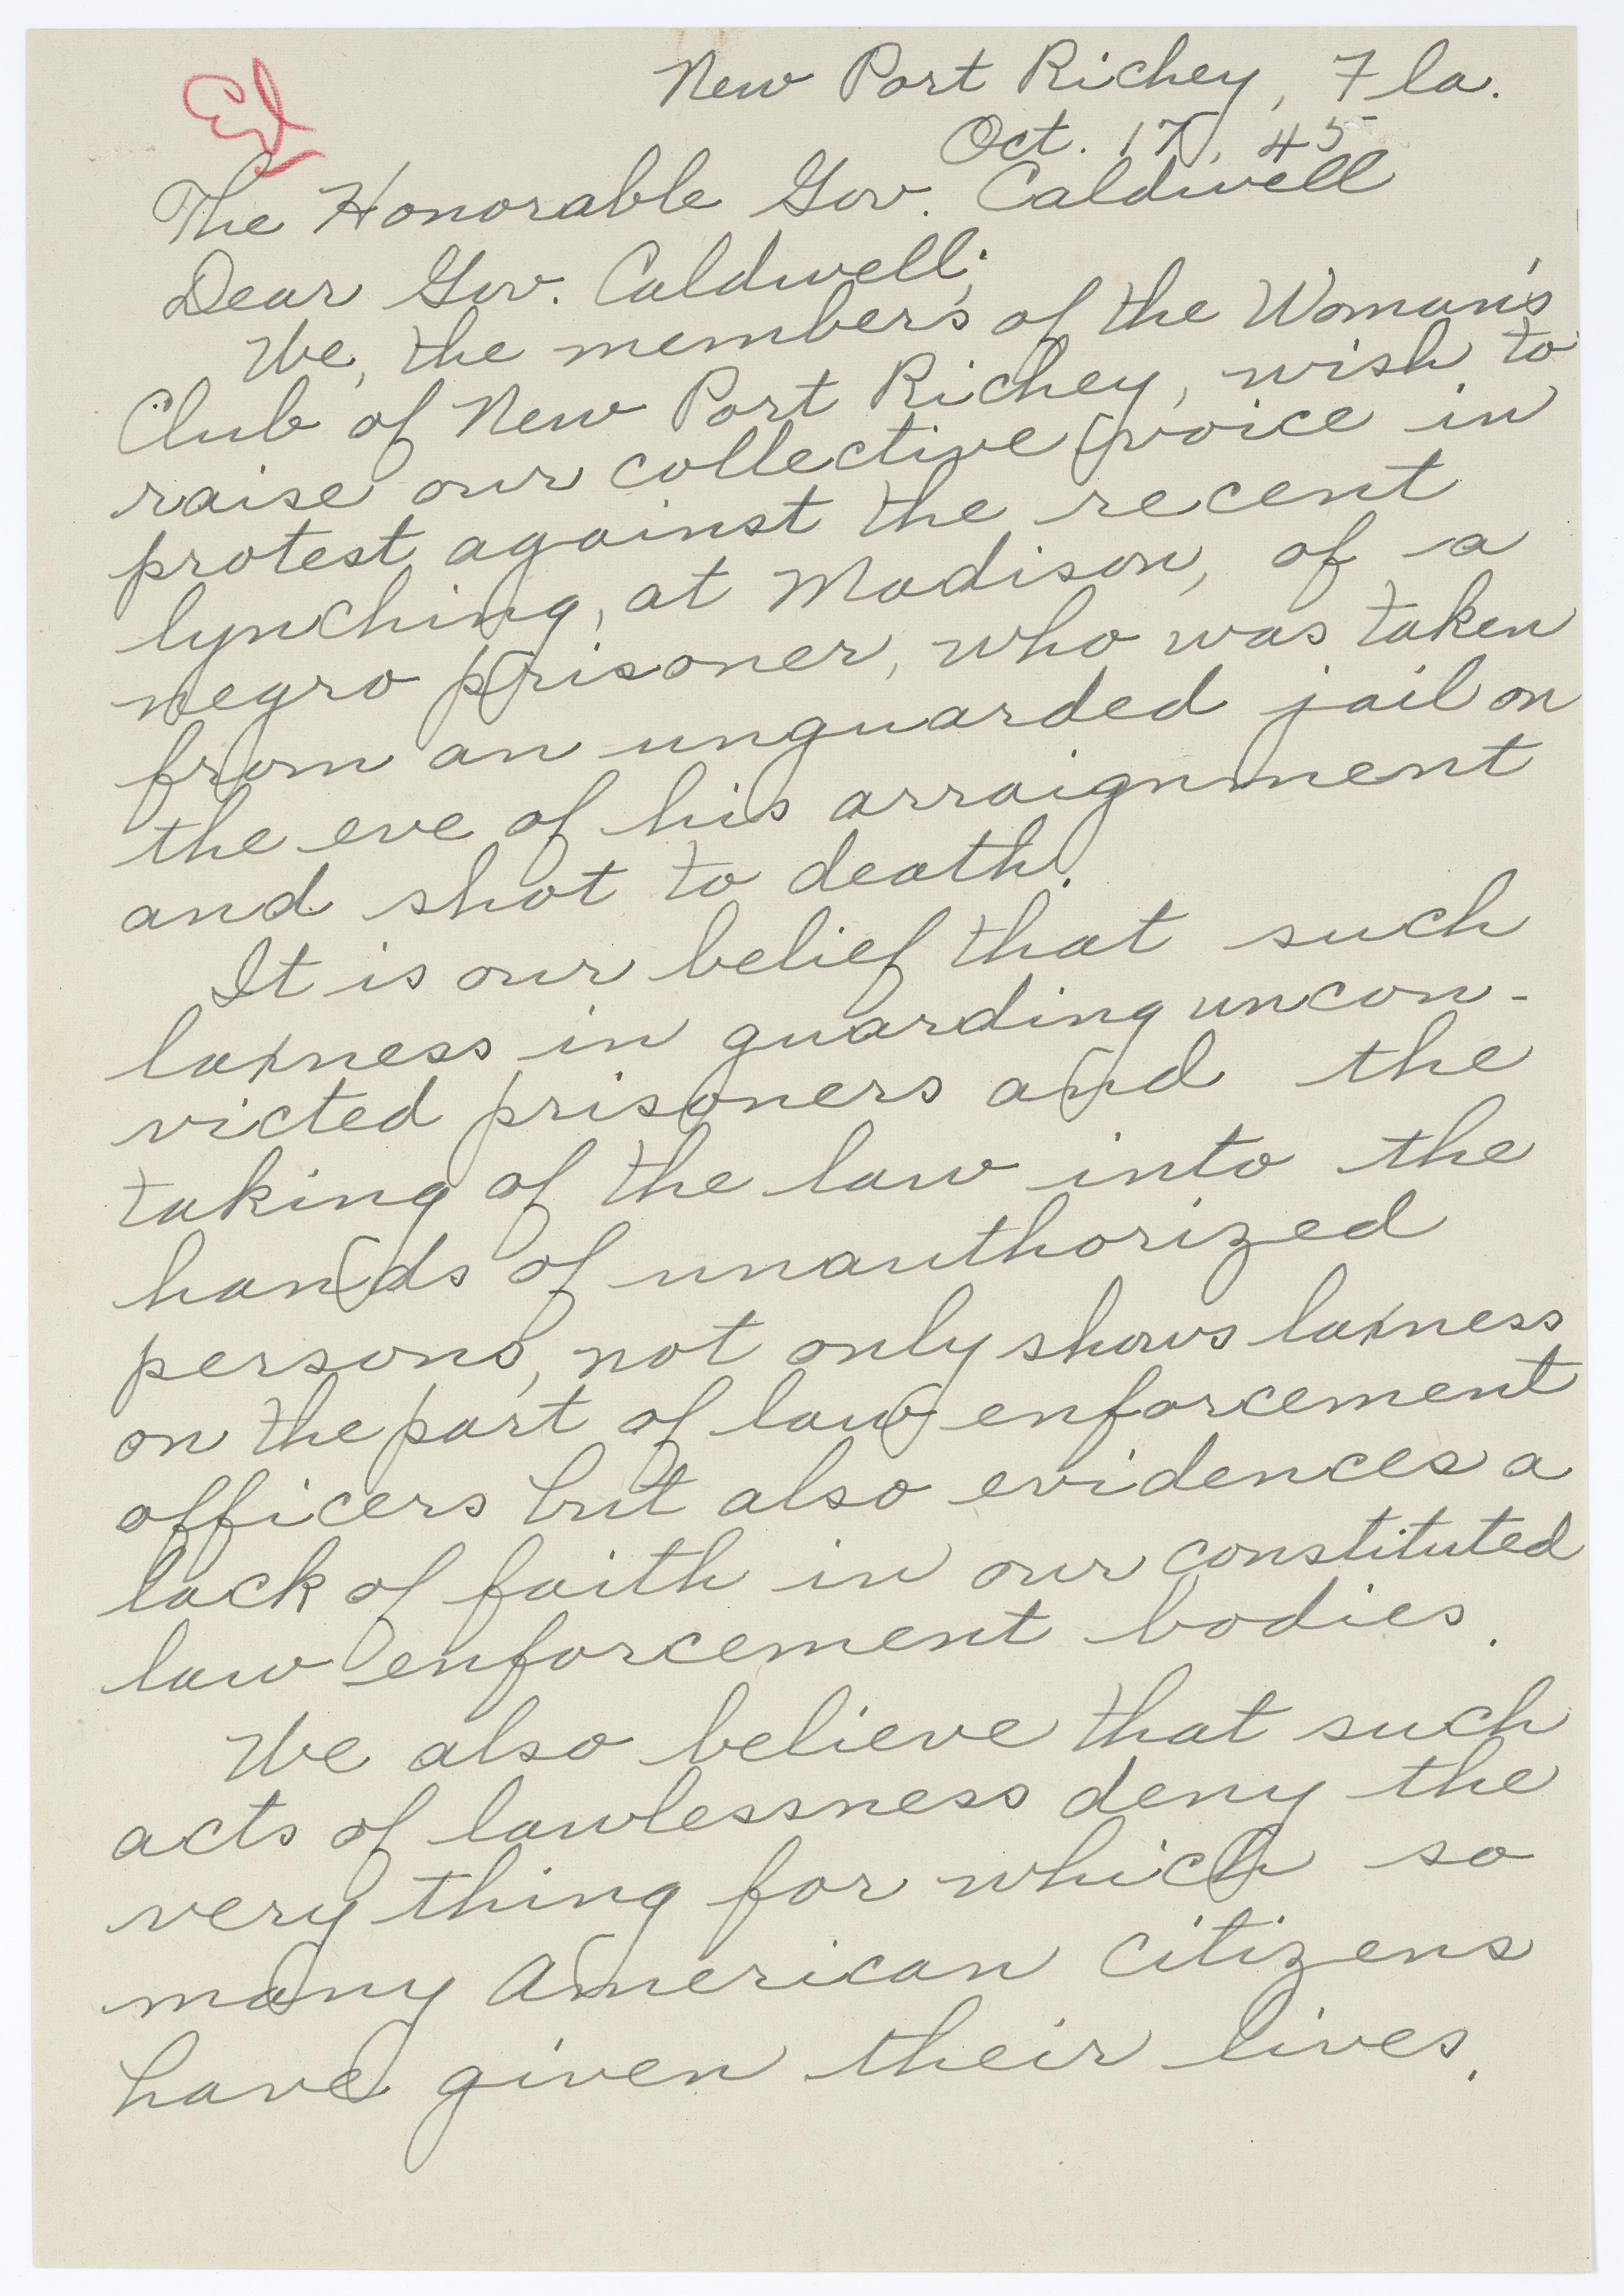 New Port Richey, Fla.
Oct. 17, 45
The Honorable Gov. Caldwell
Dear Gov. Caldwell;
We, the members of the Woman's
Club of New Port Richey, wish to
raise our collective voice in
protest against the recent
lynching, at Madison, of a
negro prisoner, who was taken
from an unguarded jail on
the eve of his arraignment
and shot to death.
It is our belief that such
laxness in guarding uncon-
victed prisoners and the
taking of the law into the
hands of unauthorized
persons, not only shows laxness
on the part of law enforcement
officers but also evidences a
lack of faith in our constituted
law enforcement bodies.
We also believe that such
acts of lawlessness deny the
very thing for which so
many American citizens
have given their lives.